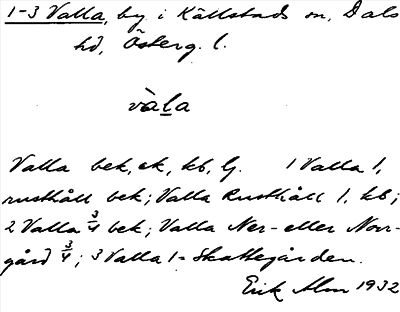 1-3 Valla, by i Källstads sn, Dals
hd, Österg. l.
vàl̲a
Valla bek, ek, kb, lj. 1 Valla 1,
rusthåll bek; Valla Rusthåll 1, kb;
2 Valla 3/4 bek; Valla Ner- eller Norr-
gård 3/4; 3 Valla 1 = Skattegården.
Erik Alm 1932